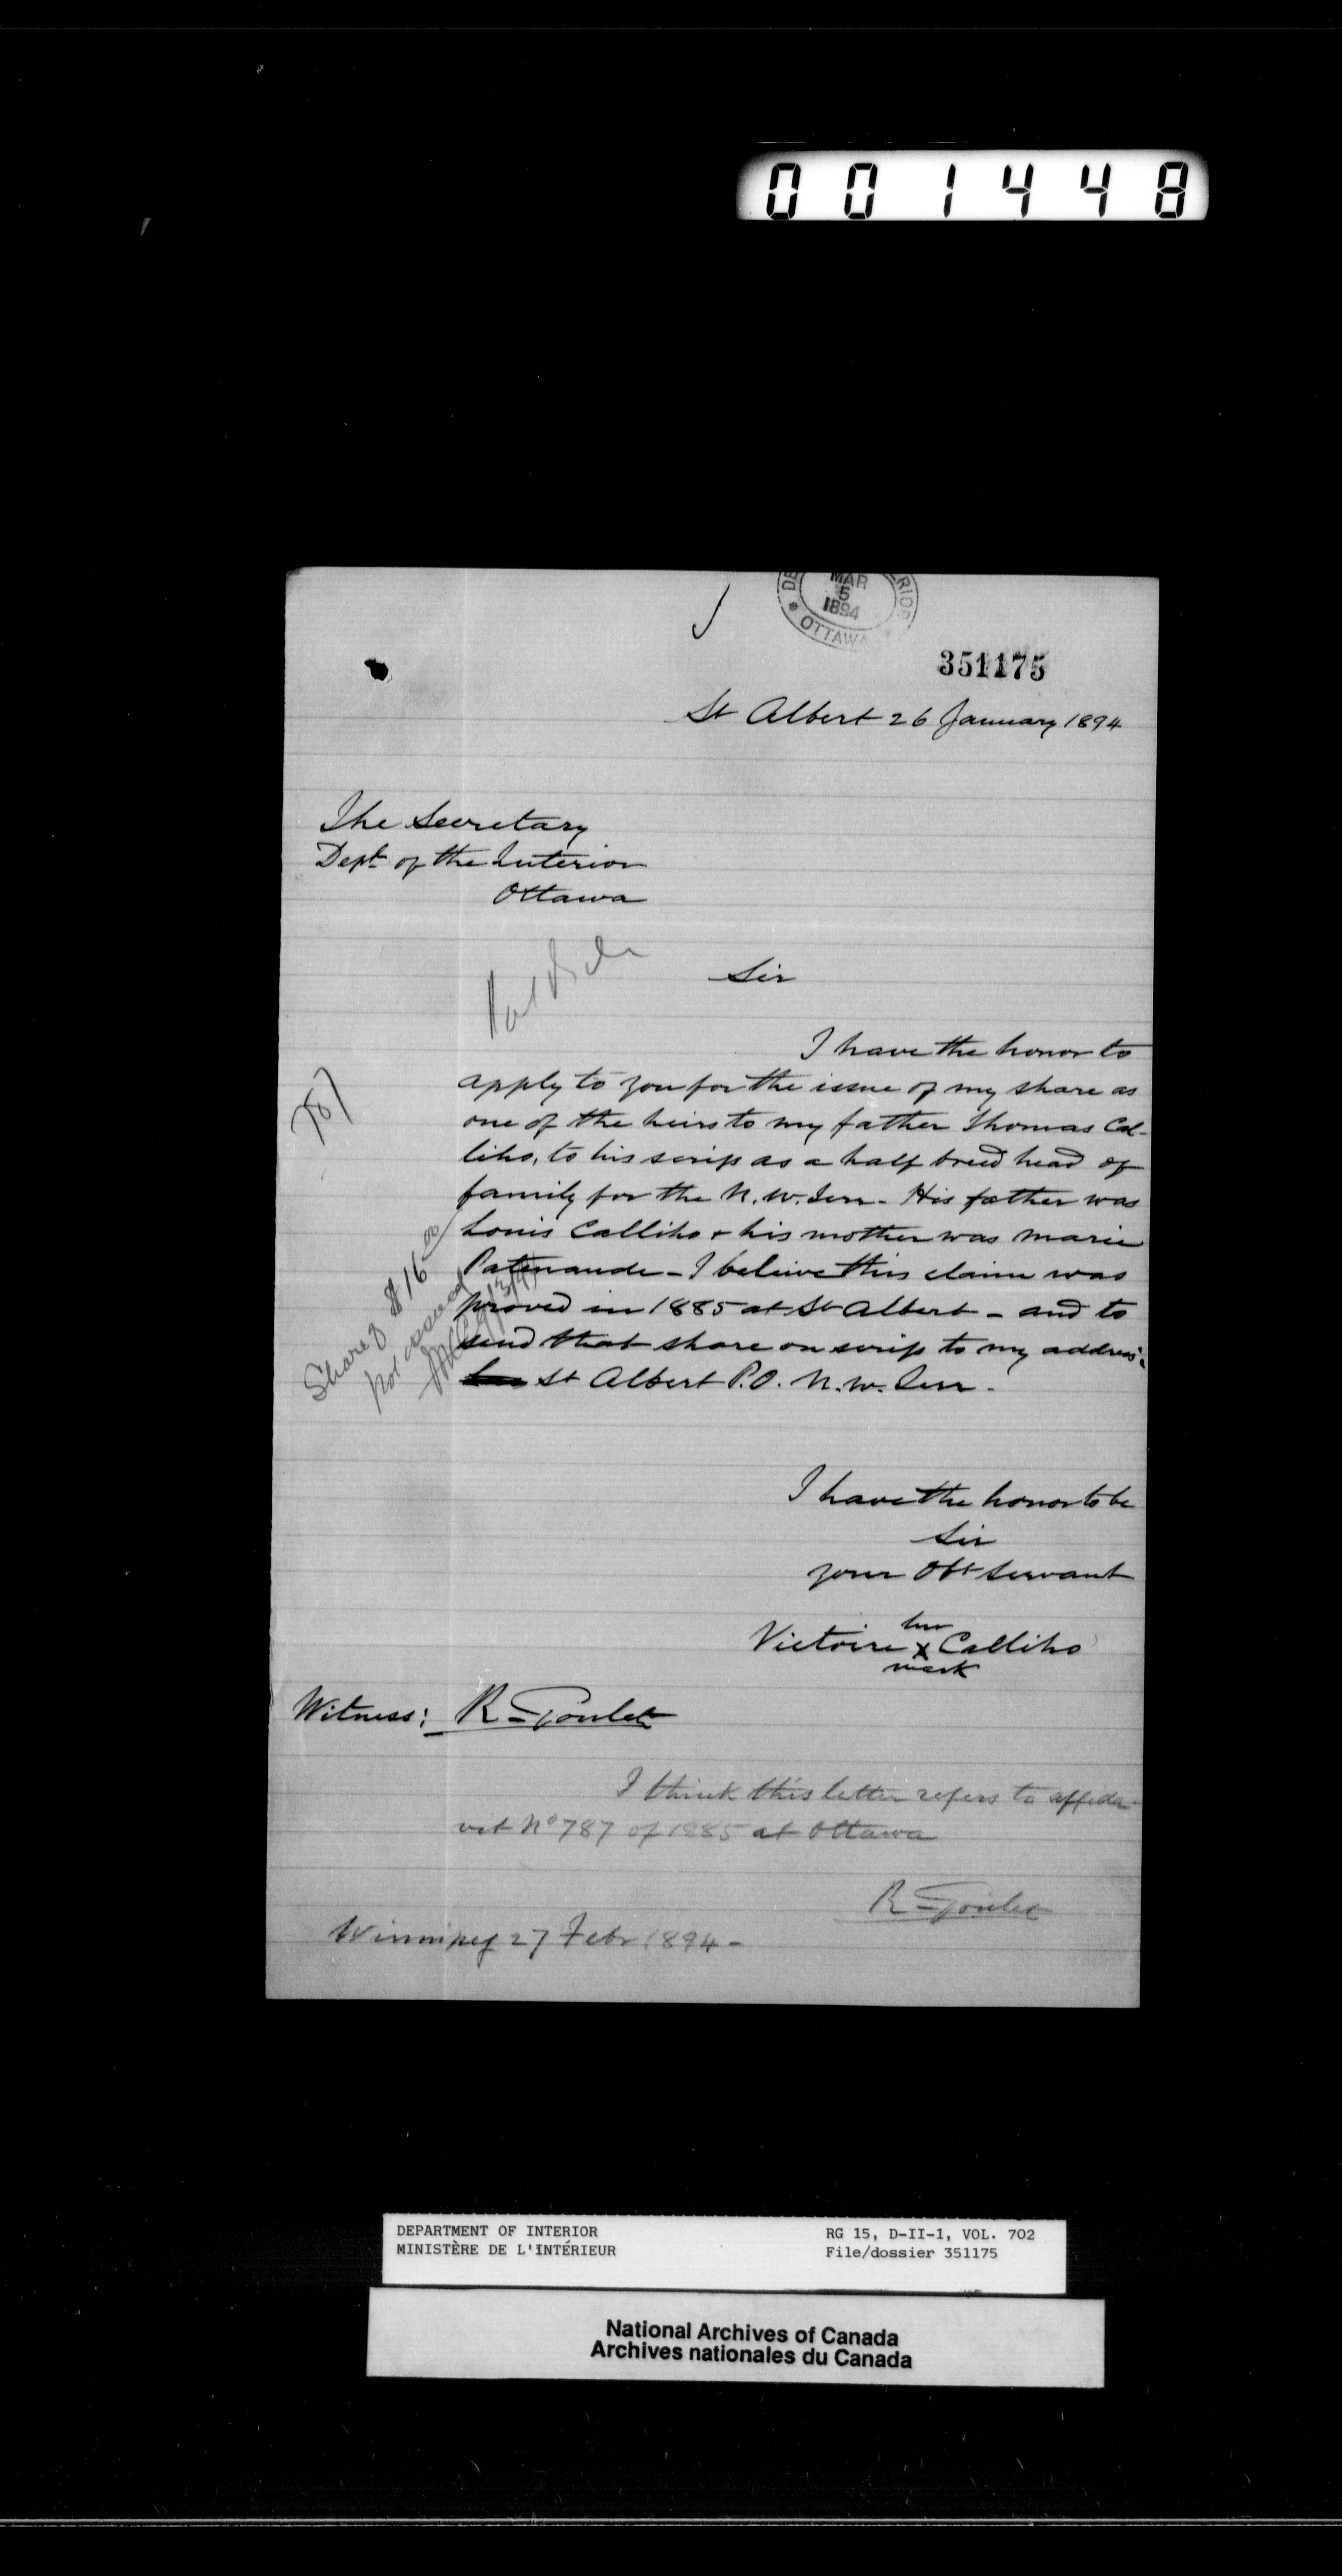 001448
MAR
5
1894
OTTAWA
351175
St Albert 26 January 1894
The Secretary
Dept of the Interior
Ottawa
Sir
I have the honor to
apply to you for the issue of my share as
one of the heirs to my father Thomas Cal-
liho, to his scrip as a half breed head of
family for the N.W. Terr - His father was
Louis Calliho + his mother was Marie
Patenaude - I believe this claim was
proved in 1885 at St Albert - and to
send that share on scrip to my address:
St Albert P.O. N.W. Terr -
Share of $16 00
not issued
I have the honor to be
Sir
your Obt servant
her
Victoire X Calliho
mark
Witness: R. Goulet
I think this letter refers to affida-
vit No 787 of 1885 at Ottawa
R. Goulet
Winnipeg 27 Febr 1894 -
DEPARTMENT OF INTERIOR RG 15, D-II-1, VOL. 702
MINISTÈRE DE L'INTÉRIEUR File/dossier 351175
National Archives of Canada
Archives nationales du Canada